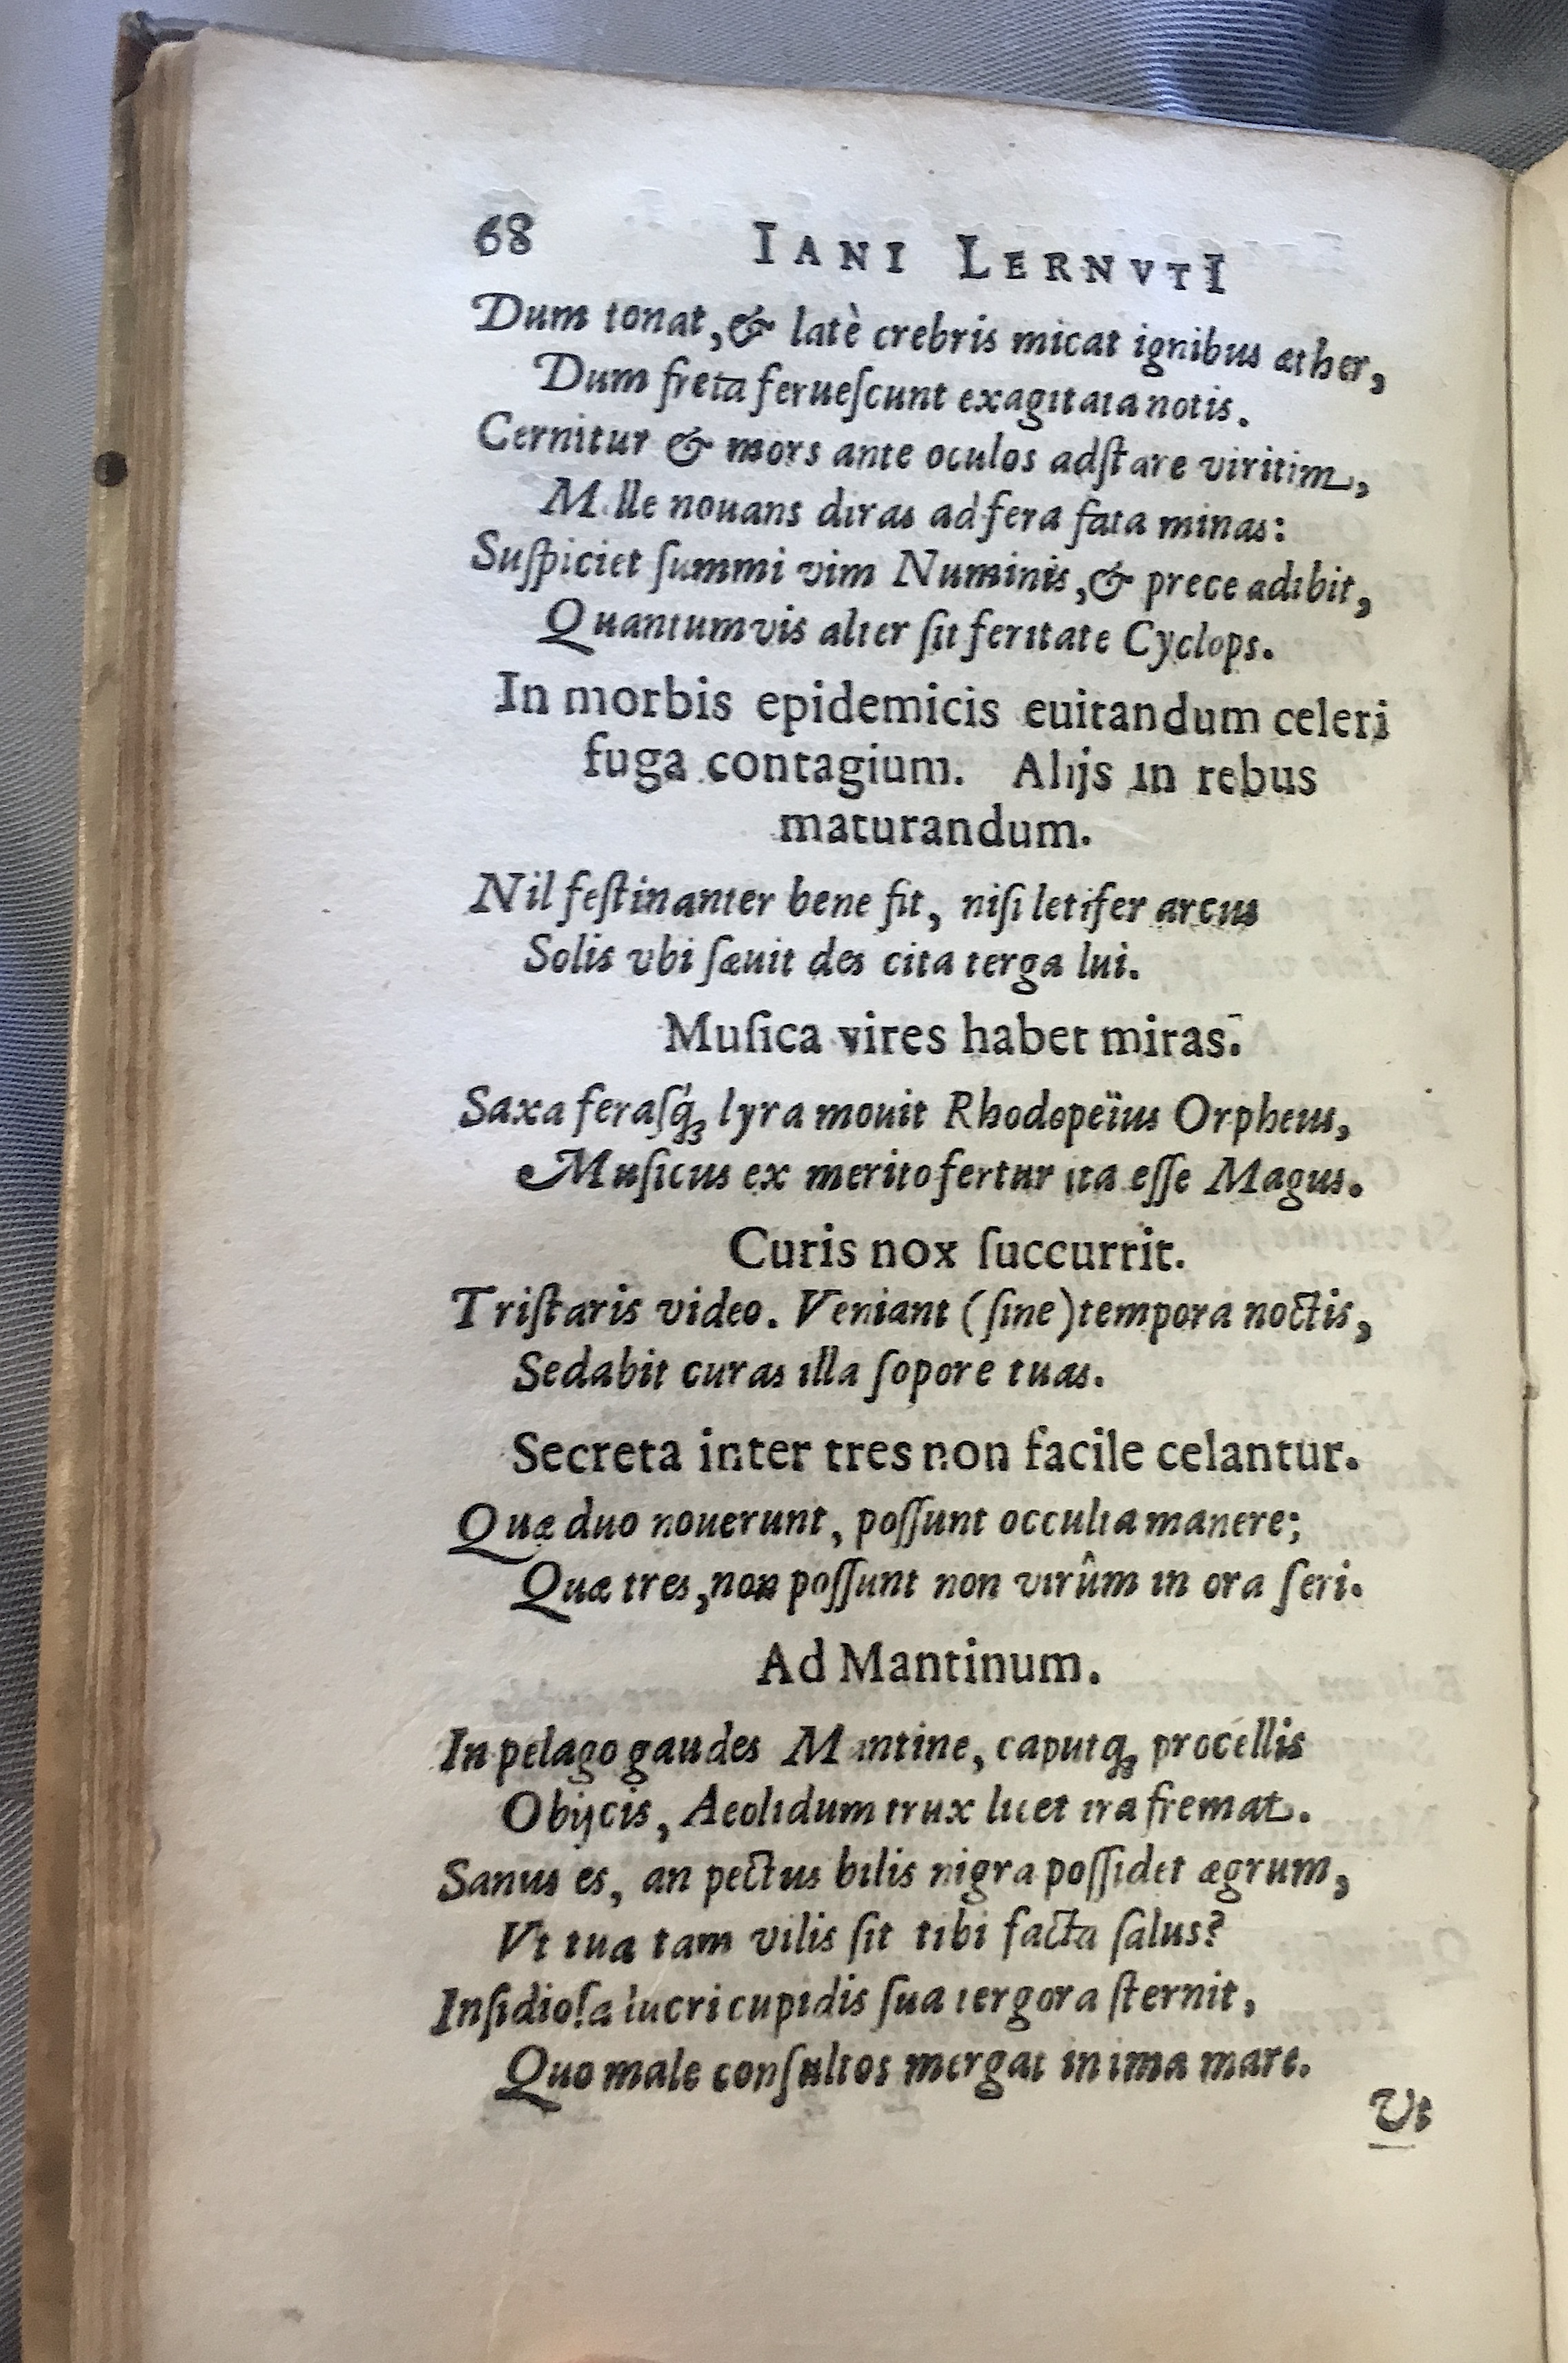 68 IANI LERNVTI
Dum tonat, & latè crebris micat ignibus æther,
Dum freta ferueſcunt exagitata notis.
Cernitur & mors ante oculos adſtare viritim,
Mille nouans diras ad fera fata minas:
Suſpiciet ſummi vim Numinis, & prece adibit,
Quantumvis alter ſit feritate Cyclops.
In morbis epidemicis euitandum celeri
fuga contagium. Alijs in rebus
maturandum.
Nil feſtinanter bene fit, niſi letifer arcus
Solis vbi ſæuit des cita terga lui.
Muſica vires habet miras.
Saxa feraſq́ꝫ lyra mouit Rhodopeïus Orpheus,
Muſicus ex merito fertur ita eſſe Magus.
Curis nox ſuccurrit.
Triſtaris video. Veniant (ſine) tempora noctis,
Sedabit curas illa ſopore tuas.
Secreta inter tres non facile celantur.
Quæ duo nouerunt, poſſunt occulta manere;
Quæ tres, non poſſunt non virûm in ora ſeri.
Ad Mantinum.
In pelago gaudes Mantine, caputqꝫ procellis
Obijcis, Aeolidum trux licet ira fremat.
Sanus es, an pectus bilis nigra poſſidet ægrum,
Vt tua tam vilis ſit tibi facta ſalus?
Inſidioſa lucri cupidis ſua tergora ſternit,
Quo male conſultos mergat in ima mare.
Vt